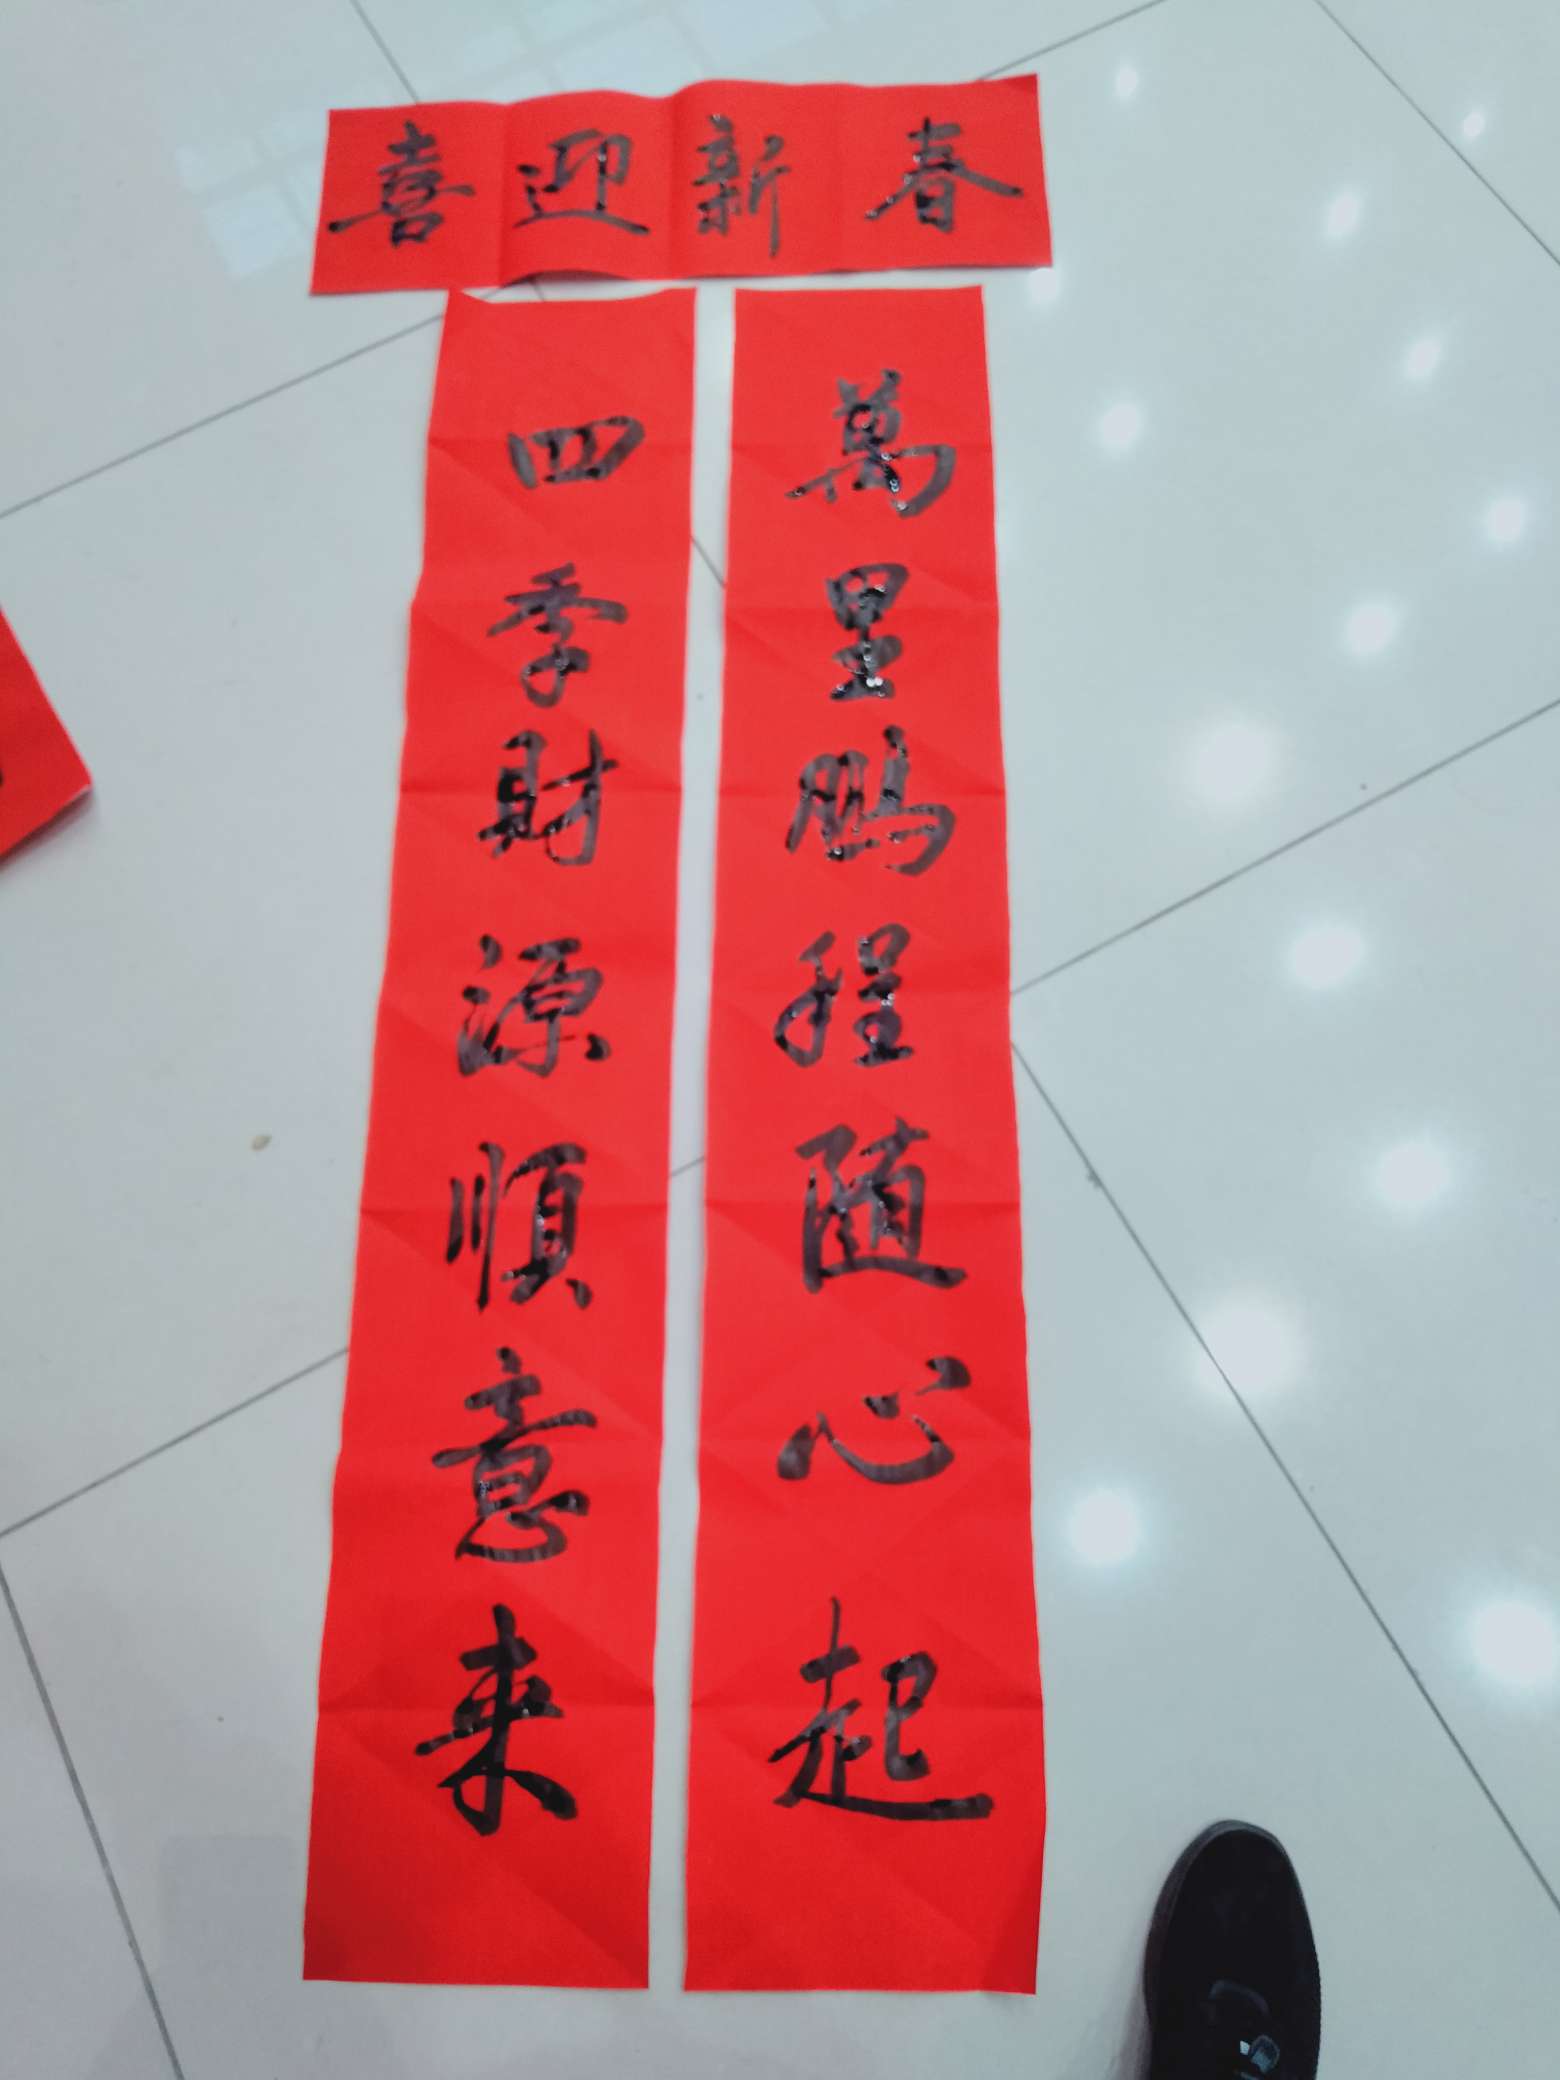 喜迎新春
四季財源順意来
萬里鵬程随心起